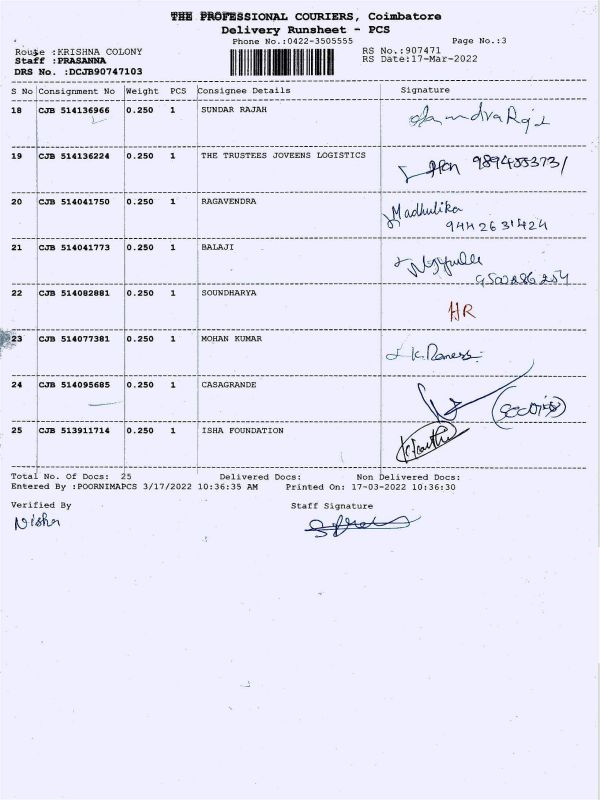 THE PROFESSIONAL COURIERS, Coimbatore
Delivery Runsheet - PCS
Phone No.:0422-3505555 Page No.:3
Route :KRISHNA COLONY RS No.:907471
Staff :PRASANNA RS Date:17-Mar-2022
DRS No. :DCJB90747103
S No Consignment No Weight PCS Consignee Details Signature
18 CJB 514136966 0.250 1 SUNDAR RAJAH
19 CJB 514136224 0.250 1 THE TRUSTEES JOVEENS LOGISTICS
20 CJB 514041750 0.250 1 RAGAVENDRA Madhulika
9442631424
21 CJB 514041773 0.250 1 BALAJI
22 CJB 514082881 0.250 1 SOUNDHARYA HR
23 CJB 514077381 0.250 1 MOHAN KUMAR
24 CJB 514095685 0.250 1 CASAGRANDE
25 CJB 513911714 0.250 1 ISHA FOUNDATION
Total No. Of Docs: 25 Delivered Docs: Non Delivered Docs:
Entered By :POORNIMAPCS 3/17/2022 10:36:35 AM Printed On: 17-03-2022 10:36:30
Verified By Staff Signature
Nisha